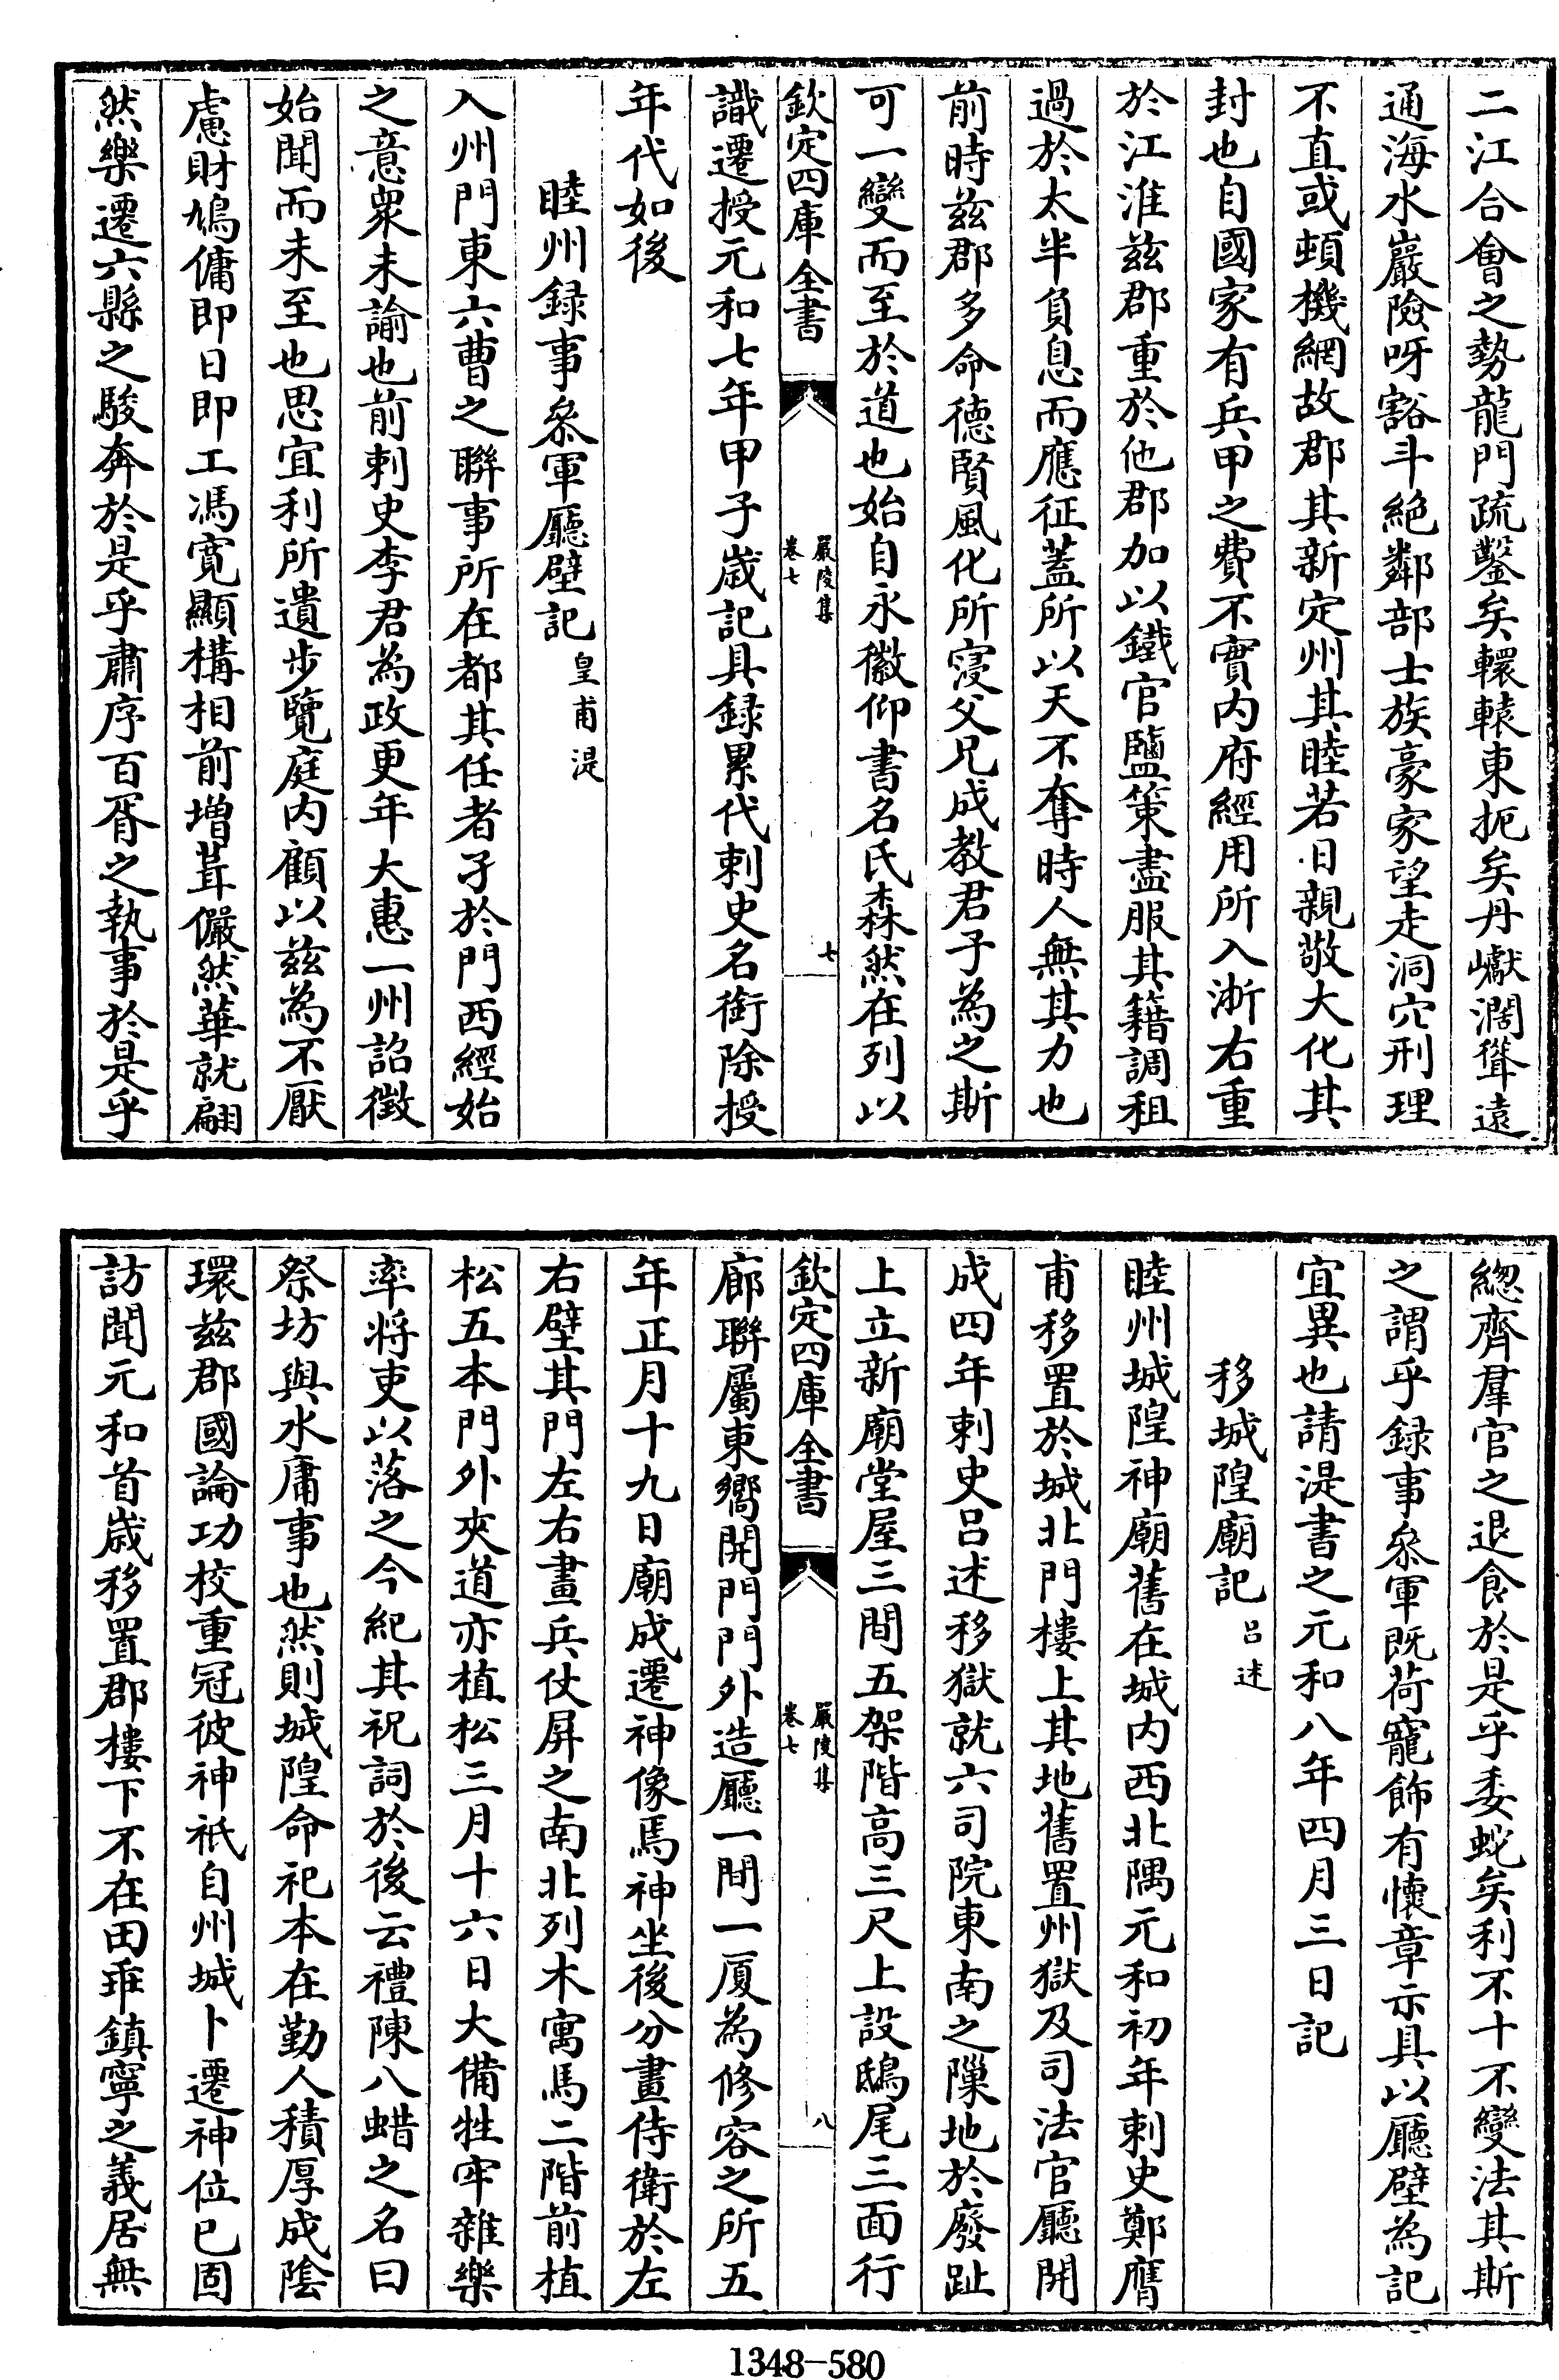 二江合會之勢龍門疏鑿矣轘轅東扼矣丹巘濶聳遠
通海水巖險呀豁斗絶鄰部士族豪家望走洞穴刑理
不直或頓機網故郡其新定州其睦若日親敬大化其
封也自國家有兵甲之費不實内府經用所入淅右重
於江淮兹郡重於他郡加以鐵官鹽策盡服其籍調租
過於太半負息而應征蓋所以天不奪時人無其力也
前時兹郡多命德賢風化所寖父兄成教君子為之斯
可一變而至於道也始自永徽仰書名氏森然在列以
欽定四庫全書
嚴陵集
卷七
七
識遷授元和七年甲子歳記具録累代刺史名銜除授
年代如後
睦州録事叅軍廳壁記 皇甫湜
入州門東六曹之聯事所在都其任者孑於門西經始
之意衆未諭也前刺史李君為政更年大惠一州詔徵
始聞而未至也思宜利所遺步覽庭内顧以兹為不厭
慮財鳩傭即日即工馮寛顯構相前增葺儼然華就翩
然樂遷六縣之駿奔於是乎肅序百胥之執事於是乎
緫齊羣官之退食於是乎委蛇矣利不十不變法其斯
之謂乎録事叅軍既荷寵飾有懐章示具以廳壁為記
宜異也請湜書之元和八年四月三日記
移城隍廟記 吕述
睦州城隍神廟舊在城内西北隅元和初年刺史鄭膺
甫移置於城北門樓上其地舊置州獄及司法官廳開
成四年刺史吕述移獄就六司院東南之隟地於廢趾
上立新廟堂屋三間五架階高三尺上設鴟尾三面行
欽定四庫全書
嚴陵集
卷七
八
廊聯屬東嚮開門門外造廳一間一厦為修容之所五
年正月十九日廟成遷神像焉神坐後分畫侍衛於左
右壁其門左右畫兵仗屏之南北列木寓馬二階前植
松五本門外夾道亦植松三月十六日大備牲牢雜樂
率将吏以落之今紀其祝詞於後云禮陳八蜡之名曰
祭坊與水庸事也然則城隍命祀本在勤人積厚成隂
環兹郡國論功校重冠彼神祇自州城卜遷神位已固
訪聞元和首歳移置郡樓下不在田乖鎮寧之義居無
1348-580